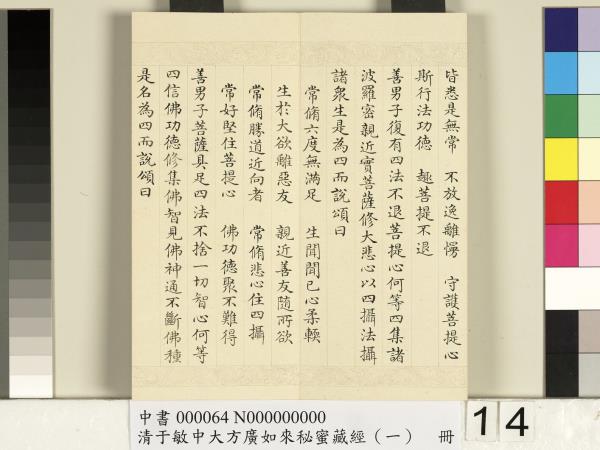 皆悉是無常　不放逸離慢　守護菩提心
斯行法功德　趣菩提不退
善男子復有四法不退菩提心何等四集諸
波羅密親近實菩薩修大悲心以四攝法攝
諸衆生是為四而說頌曰
常脩六度無滿足　生聞聞已心柔輭
生於大欲離惡友　親近善友隨所欲
常脩勝道近向者　常脩悲心住四攝
常好堅住菩提心　佛功德聚不難得
善男子菩薩具足四法不捨一切智心何等
四信佛功德修集佛智見佛神通不斷佛種
是名為四而說頌曰
中書 000064 N000000000
清于敏中大方廣如來秘蜜藏經（一）　冊
14